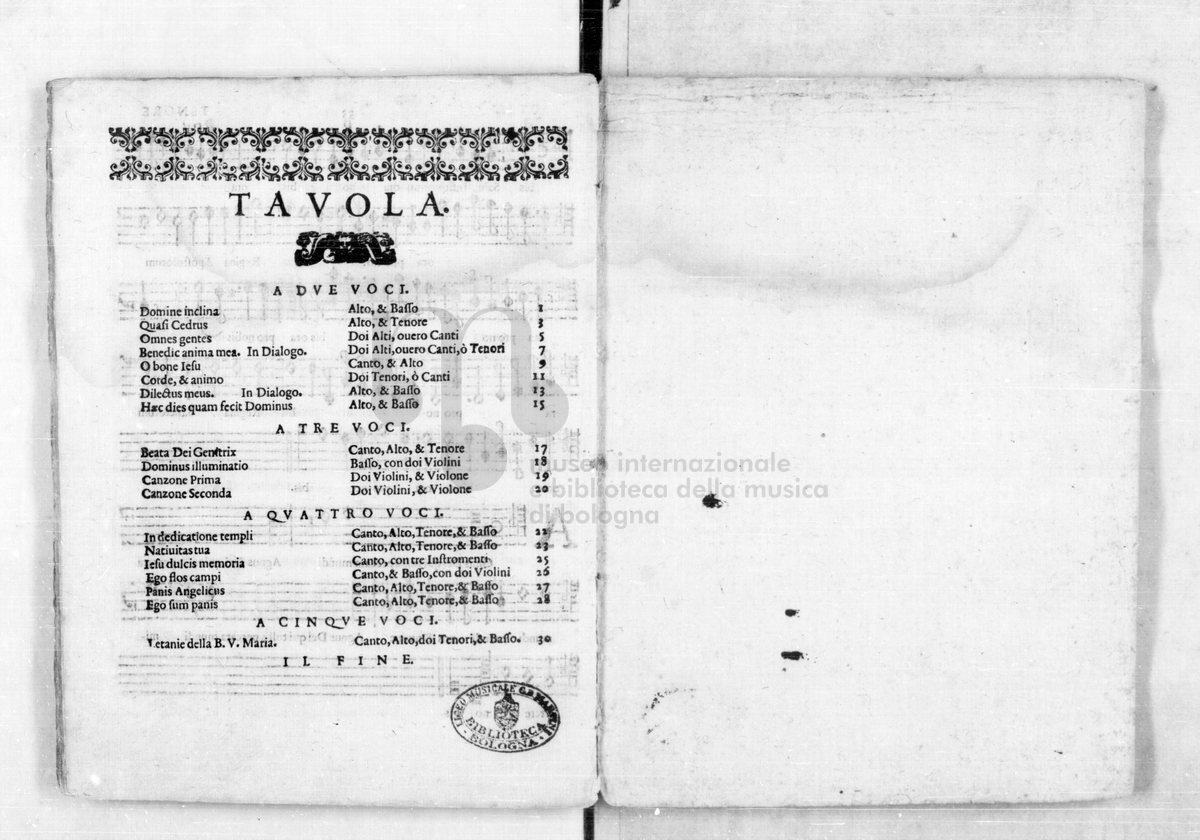 TAVOLA.
A DVE VOCI.
Domine inclina Alto, & Baſſo 1
Quaſi Cedrus Alto, & Tenore 3
Omnes gentes Doi Alti, ouero Canti 5
Benedic anima mea. In Dialogo. Doi Alti,ouero Canti,ò Tenori 7
O bone Ieſu Canto, & Alto 9
Corde, & animo Doi Tenori, ò Canti 11
Dilectus meus. In Dialogo. Alto, & Baſſo 13
Hæc dies quam fecit Dominus Alto, & Baſſo 15
A TRE VOCI.
Beata Dei Genitrix Canto, Alto, & Tenore 17
Dominus illuminatio Baſſo, con doi Violini 18
Canzone Prima Doi Violini, & Violone 19
Canzone Seconda Doi Violini, & Violone 20
A QVATTRO VOCI.
In dedicatione templi Canto, Alto, Tenore, & Baſſo 22
Natiuitas tua Canto, Alto, Tenore, & Baſſo 23
Ieſu dulcis memoria Canto, con tre Inſtromenti 25
Ego flos campi Canto, & Baſſo, con doi Violini 26
Panis Angelicus Canto, Alto, Tenore, & Baſſo 27
Ego ſum panis Canto, Alto, Tenore, & Baſſo 28
A CINQVE VOCI.
Letanie della B. V. Maria. Canto, Alto, doi Tenori, & Baſſo. 30
IL FINE.
LICEO MUSICALE G.B. MARTINI
BIBLIOTECA
BOLOGNA
museo internazionale
e biblioteca della musica
di bologna